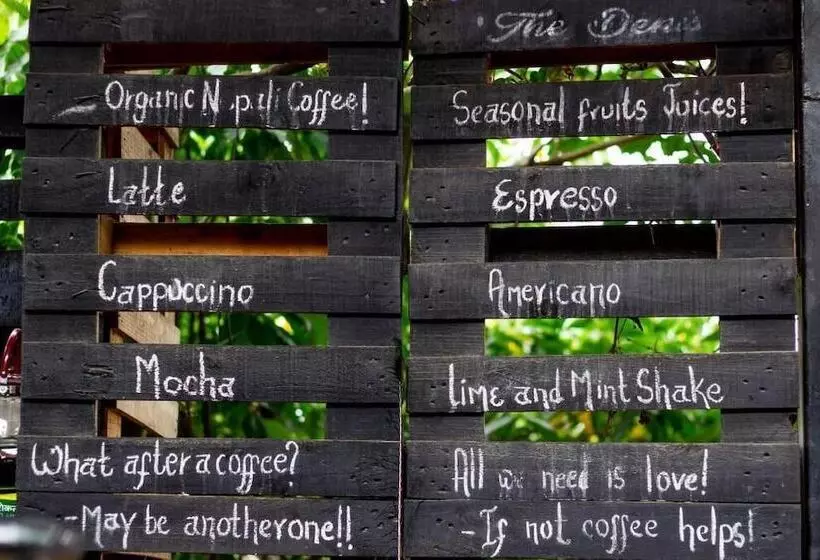 Organic Nepali Coffee!
Latte
Cappuccino
Mocha
What after a coffee?
-May be another one!!
The Denis
Seasonal fruits Juices!
Espresso
Americano
Lime and Mint Shake
All we need is love!
-If not coffee helps!